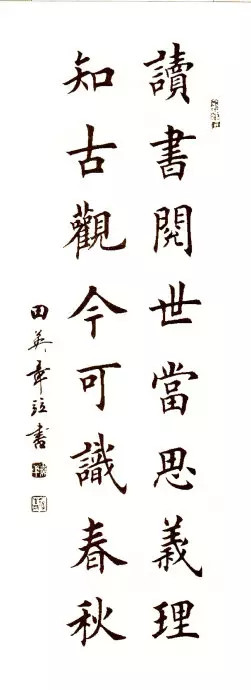 讀書閱世當思義理
知古觀今可識春秋
田英章敬書